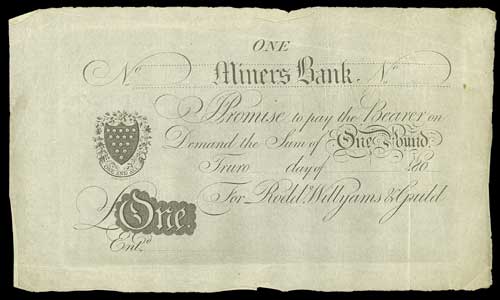 ONE
No Miners Bank. No
I Promise to pay the Bearer on
Demand the Sum of One Pound
Truro day of 180
For Rodd, Willyams & Gould
£One
Entd